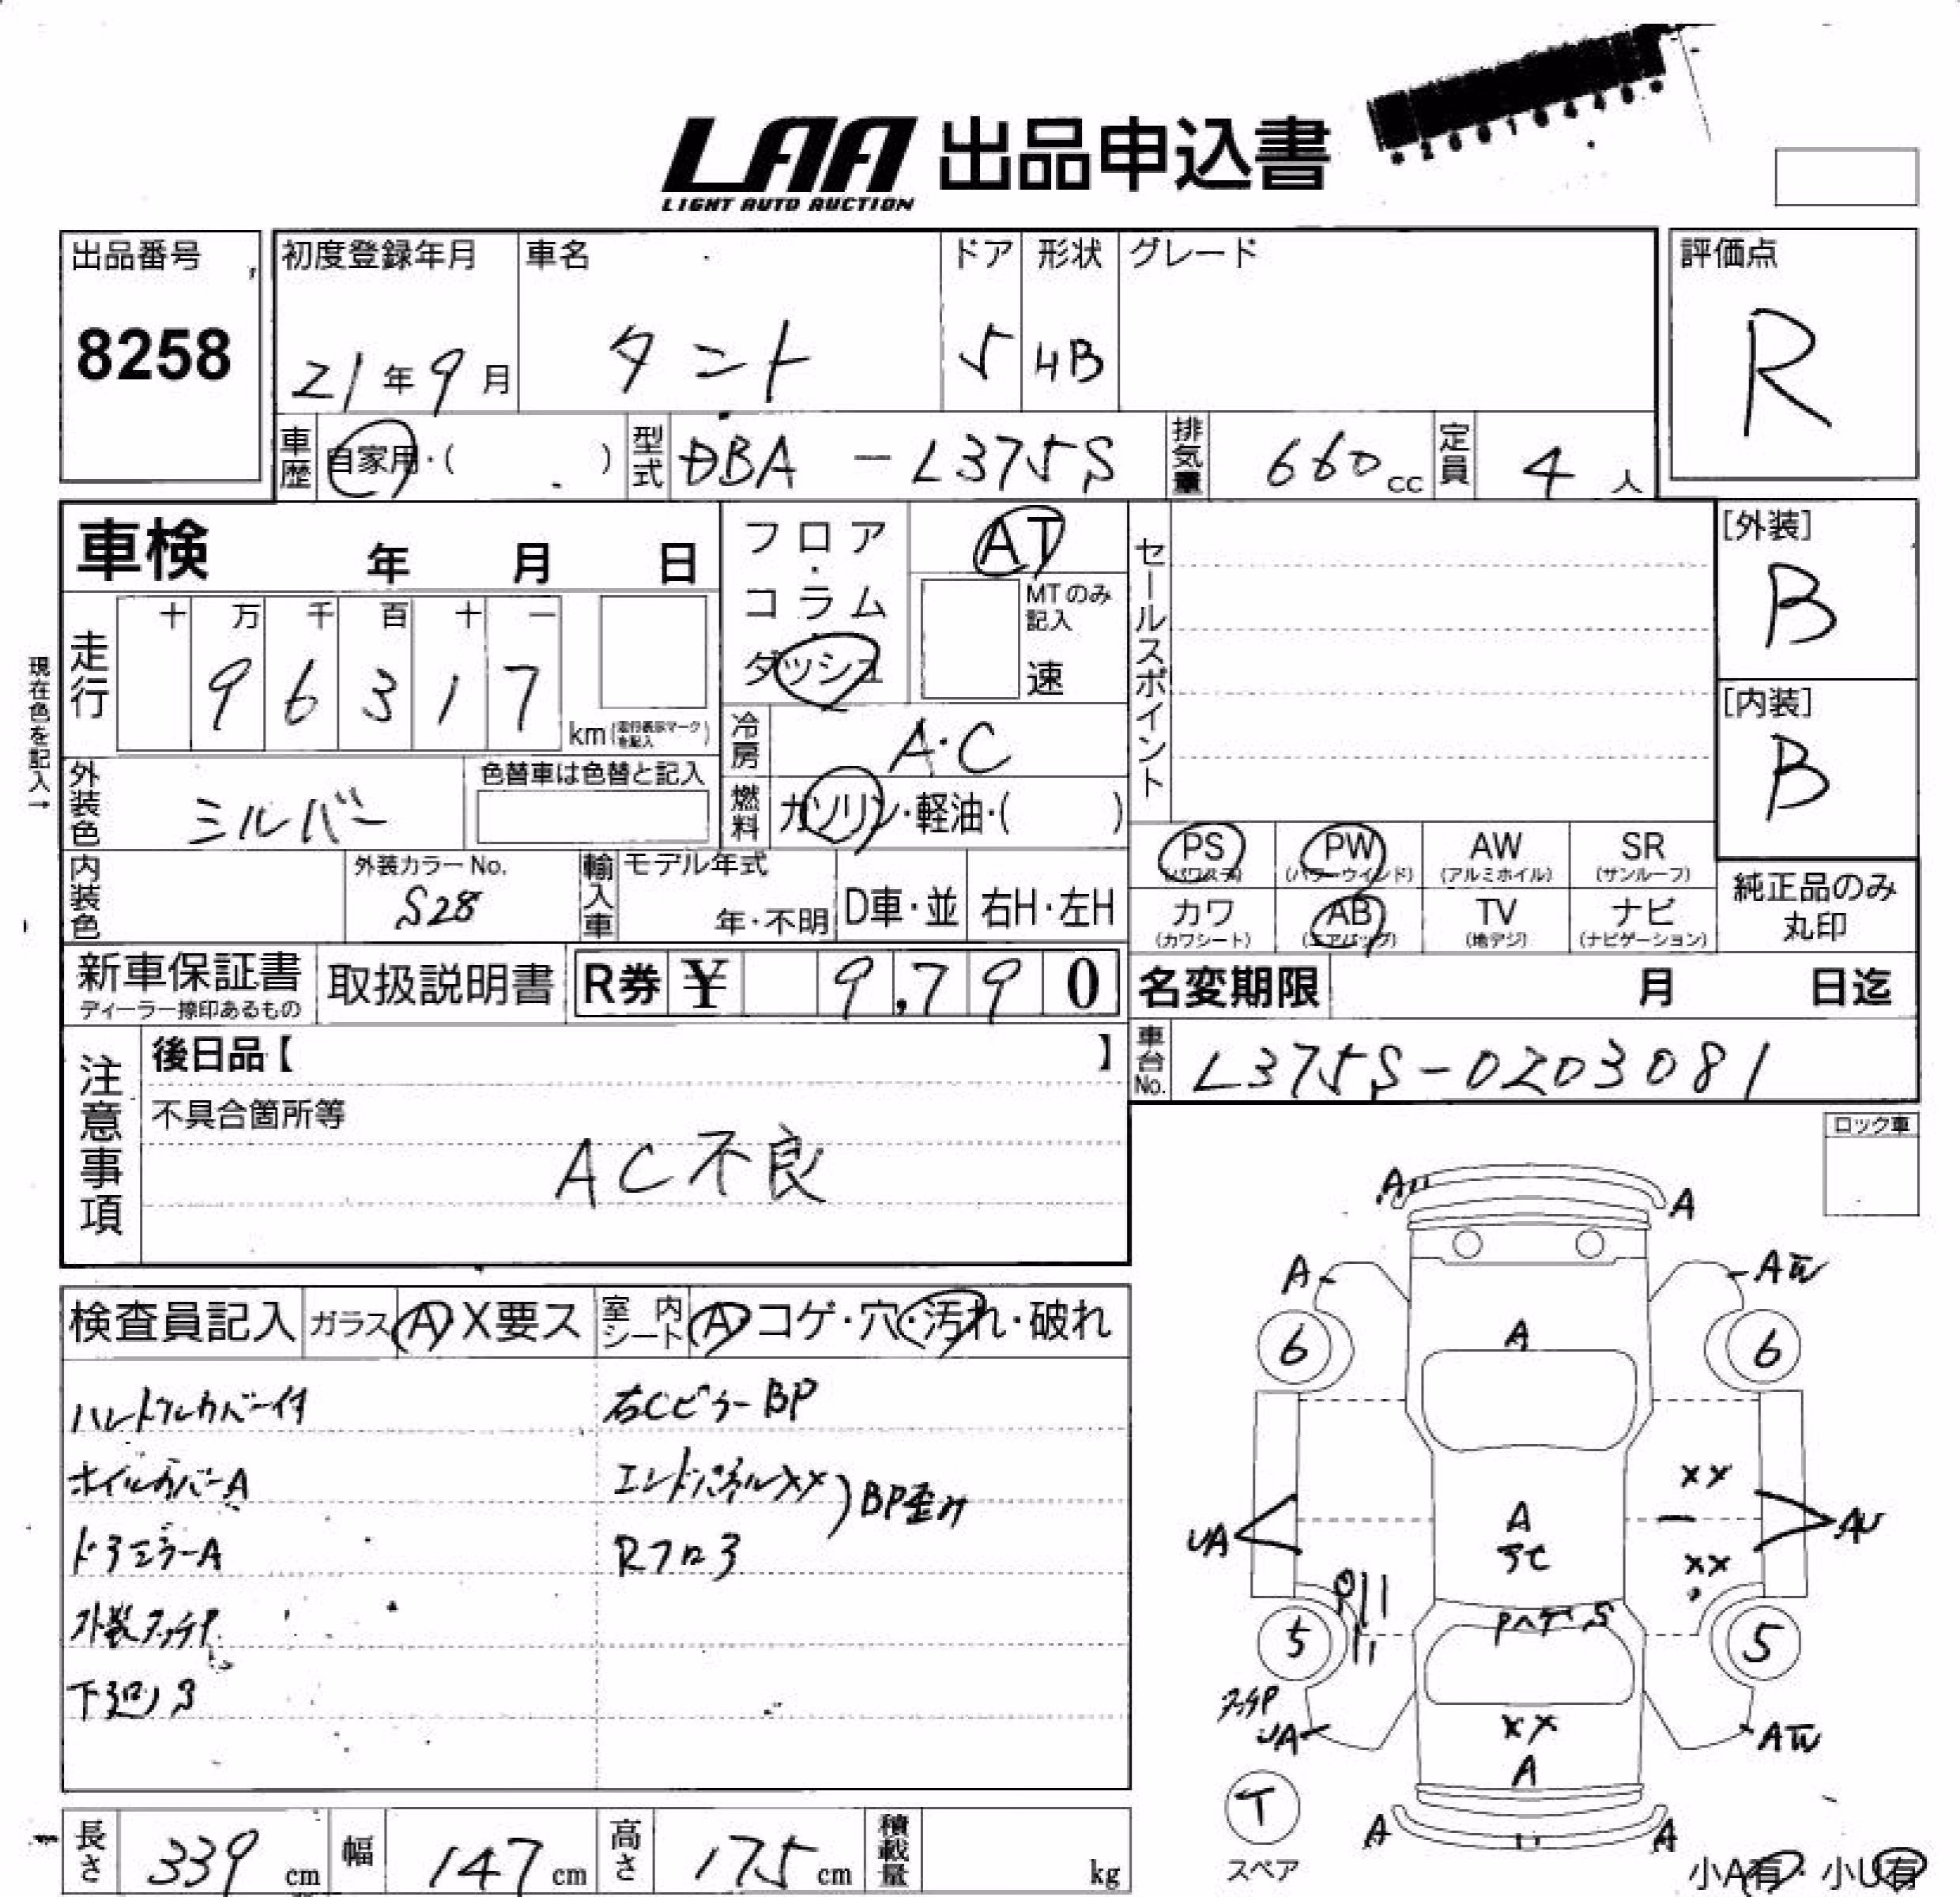 LAA 出品申込書
LIGHT AUTO AUCTION
出品番号
8258
初度登録年月
21年9月
車名
タント
ドア
5
形状
HB
グレード
評価点
R
車歴
自家用・( )
型式
DBA-L375S
排気量
660cc
定員
4人
車検 年 月 日
現在色を記入→
走行
十 万 千 百 十 一
9 6 3 1 7
km(走行表示マークを記入)
フロア・コラム
ダッシュ
AT
MTのみ記入
速
冷房
A・C
燃料
ガソリン・軽油・( )
セールスポイント
[外装]
B
[内装]
B
外装色
シルバー
色替車は色替と記入
内装色
外装カラーNo.
S28
輸入車
モデル年式
年・不明
D車・並
右H・左H
PS PW AW SR
(パワステ) (パワーウインド) (アルミホイル) (サンルーフ)
カワ AB TV ナビ
(カワシート) (エアバッグ) (地デジ) (ナビゲーション)
純正品のみ
丸印
新車保証書
ディーラー捺印あるもの
取扱説明書
R券 ¥ 9,790
名変期限 月 日迄
車台No.
L375S-0203081
注意事項
後日品【 】
不具合箇所等
AC不良
ロック車
検査員記入
ガラス A X要ス
室内シート A コゲ・穴・汚れ・破れ
ハンドルカバー付
ホイルカバーA
ドアミラーA
外装タッチP
下廻りS
右CピラーBP
エンドパネルXX
Rフロア
BP歪み
A
A
A
A
6
A
6
XX
UA
A
AU
XX
P
5
5
タッチP
UA
XX
A
A
T
スペア
A
A
小A有・小U有
長さ 339cm
幅 147cm
高さ 175cm
積載量 kg